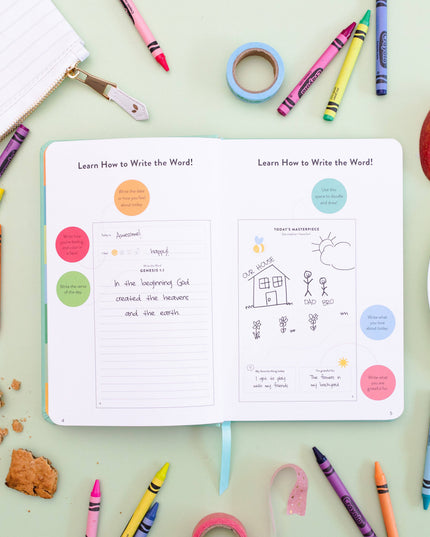 Learn How to Write the Word!
Write the date
or how you feel
about today.
Write the name
of the day.
Today is Awesome!
I feel happy!
Write the Word
GENESIS 1:1
In the beginning God
created the heavens
and the earth.
4
Learn How to Write the Word!
Use this
space to doodle
and draw!
TODAY'S MASTERPIECE
OUR HOUSE
DAD BRO
Write what
you love
about today.
My favorite thing today:
I got to play
with my friends
I'm grateful for:
The flowers
in my backyard
Write what
you are
grateful for.
5
crayons